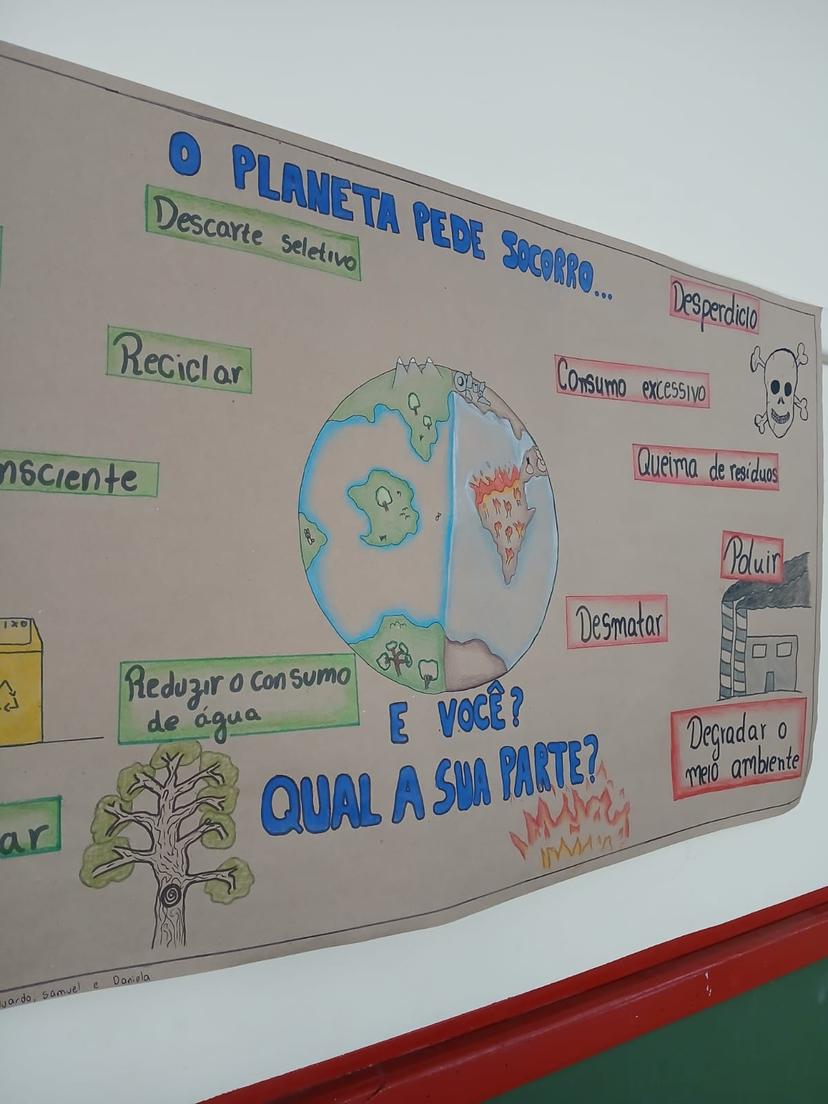 O PLANETA PEDE SOCORRO...
Descarte seletivo
Reciclar
nsciente
Reduzir o consumo
de água
ar
Desperdicio
Consumo excessivo
Queima de resíduos
Poluir
Desmatar
Degradar o
meio ambiente
E VOCÊ?
QUAL A SUA PARTE?
uardo, Samuel e Daniela